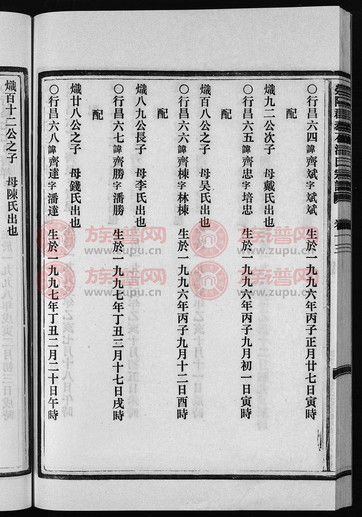 ○行昌六四諱齊斌字斌斌 生於一九九六年丙子正月廿七日寅時
配
熾九二公次子 母戴氏出也
○行昌六五諱齊忠字培忠 生於一九九六年丙子九月初一日寅時
配
熾百八公之子 母吴氏出也
○行昌六六諱齊棟字林棟 生於一九九六年丙子九月十二日酉時
配
熾八九公長子 母李氏出也
○行昌六七諱齊勝字潘勝 生於一九九七年丁丑三月十七日戌時
配
熾廿八公之子 母錢氏出也
○行昌六八諱齊達字潘達 生於一九九七年丁丑二月二十日午時
熾百十二公之子 母陳氏出也
族谱网
www.zupu.cn